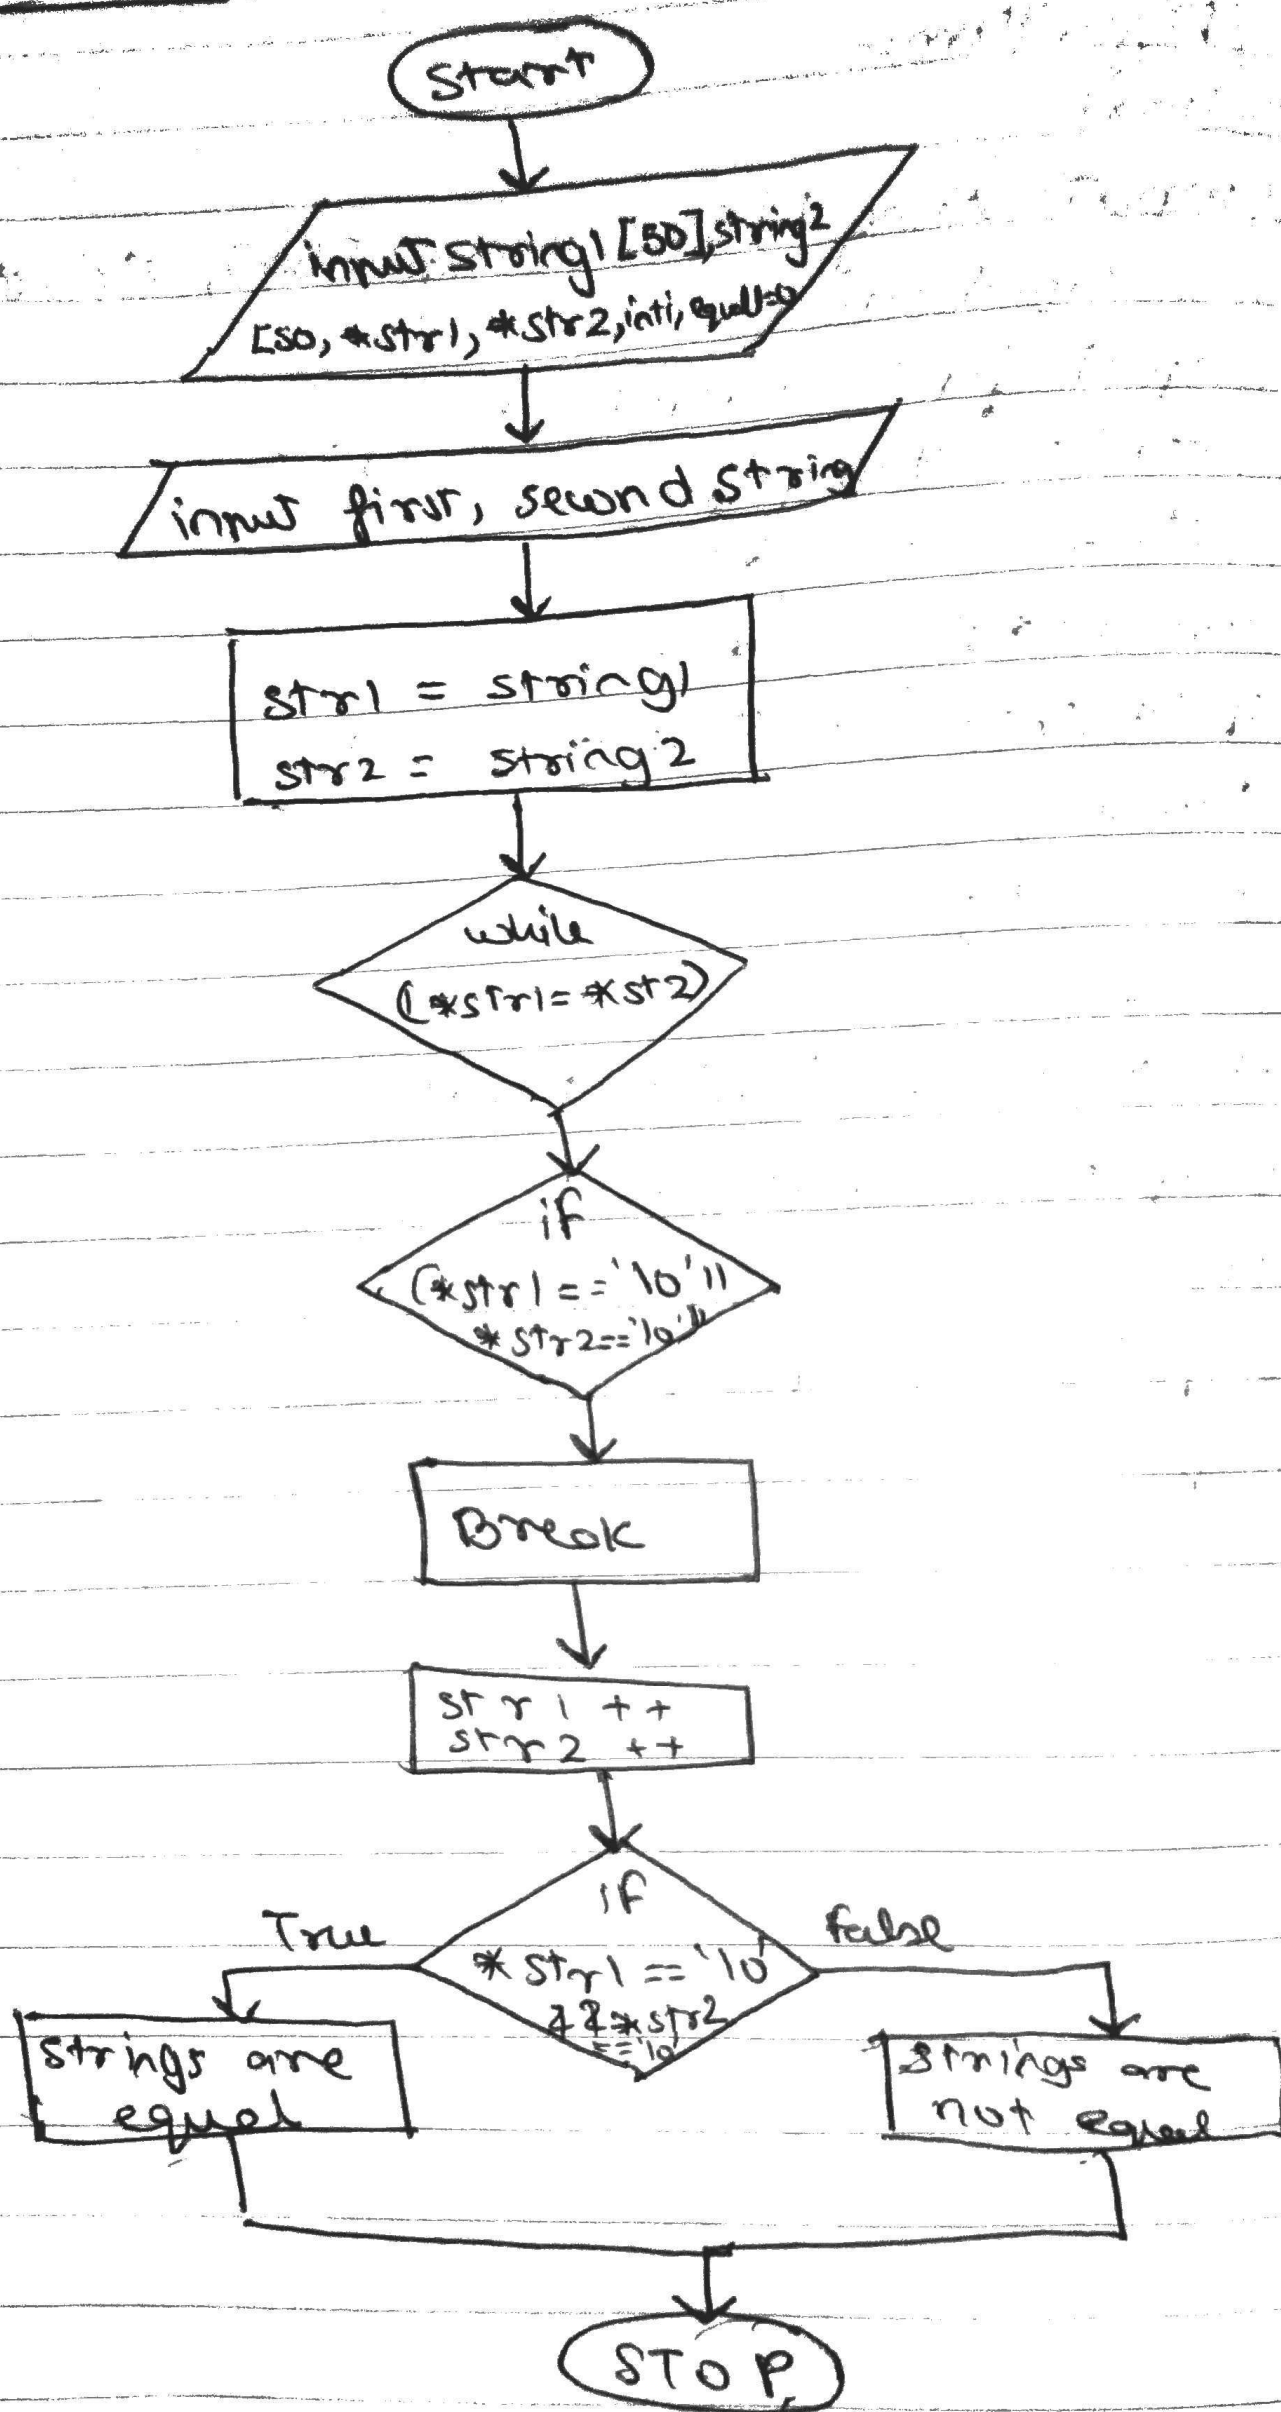 Start
input string1 [50], string2
[50, *str1, *str2, int i, equal=0
input first, second string
str1 = string1
str2 = string2
while
(*str1=*st2)
if
(*str1=='\0'||
*str2=='\0'))
Break
str1++
str2++
if
True
False
*str1=='\0'
&&*str2
=='\0'
strings are
equal
strings are
not equal
STOP